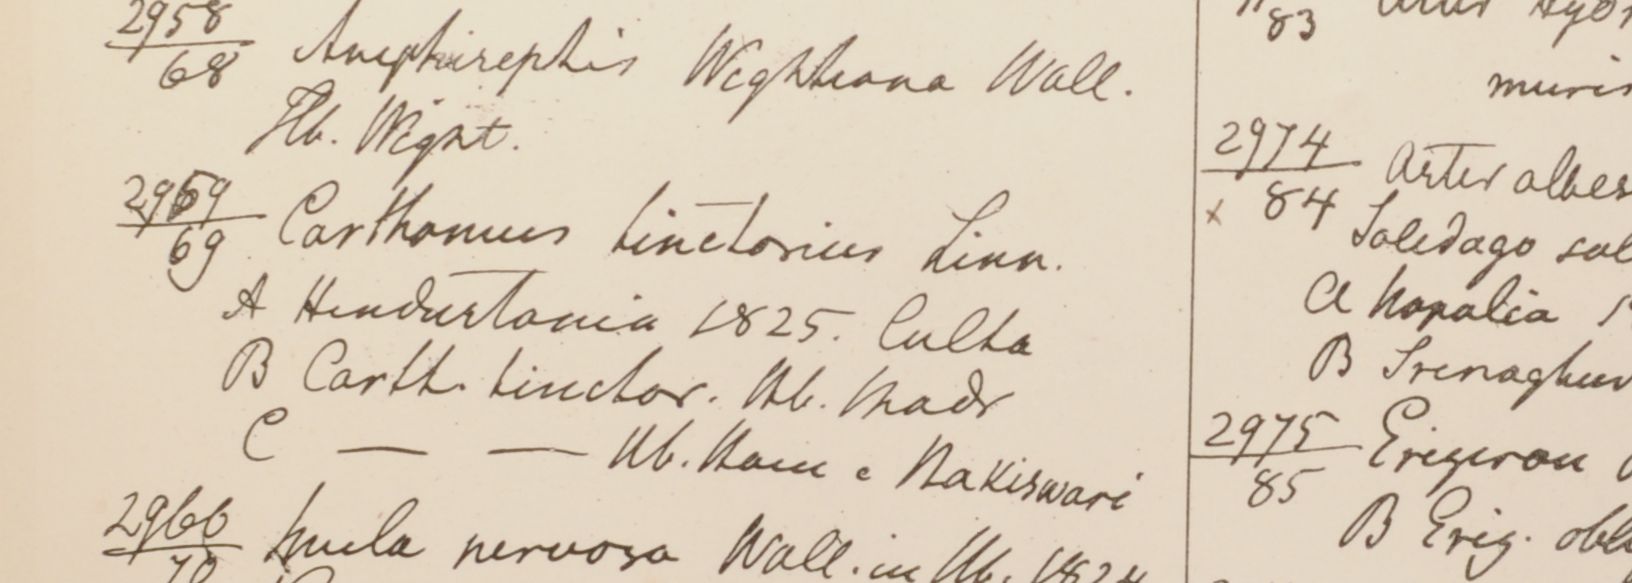 2958
68 Amphirephis Wightiana Wall.
Hb. Wight.
2959
69 Carthamus tinctorius Linn.
A Hindustania 1825. Culta
B Carth. tinctor. Hb. Madr
C — — Hb. Ham e Nakiswari
2960
70 Inula nervosa Wall. in Hb. 1824
83
muris
2974
84 Aster albes
x Soledago sol
a Napalia
B Srenaghur
2975
85 Erigeron
B Erig. obl